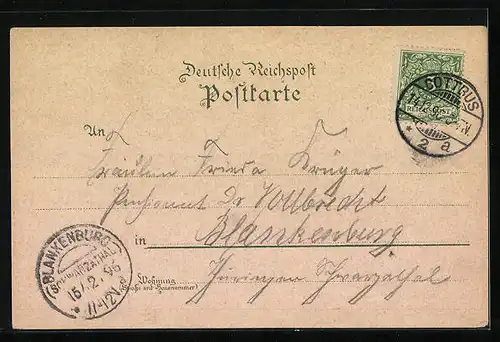 Deutsche Reichspost
Postkarte
COTTBUS
* 2 a
An
Fräulein Frieda Krüger
Pensionat Dr Vollbrecht
in Blankenburg
BLANKENBURG
(SCHWARZATHAL)
15/2.96
* 11-12V.
Wohnung
(Straße und Hausnummer)
Thüringen Schwarzathal